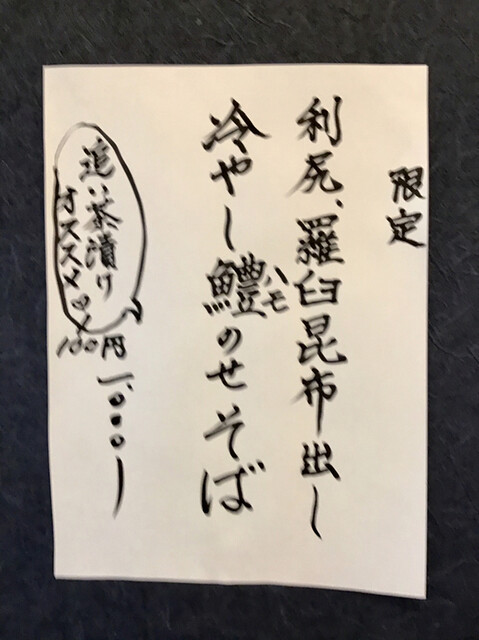 限定
利尻、羅臼昆布出し
冷やし鱧のせそば
ハモ
一、〇〇〇ー
追い茶漬け
オススメ!!
100円